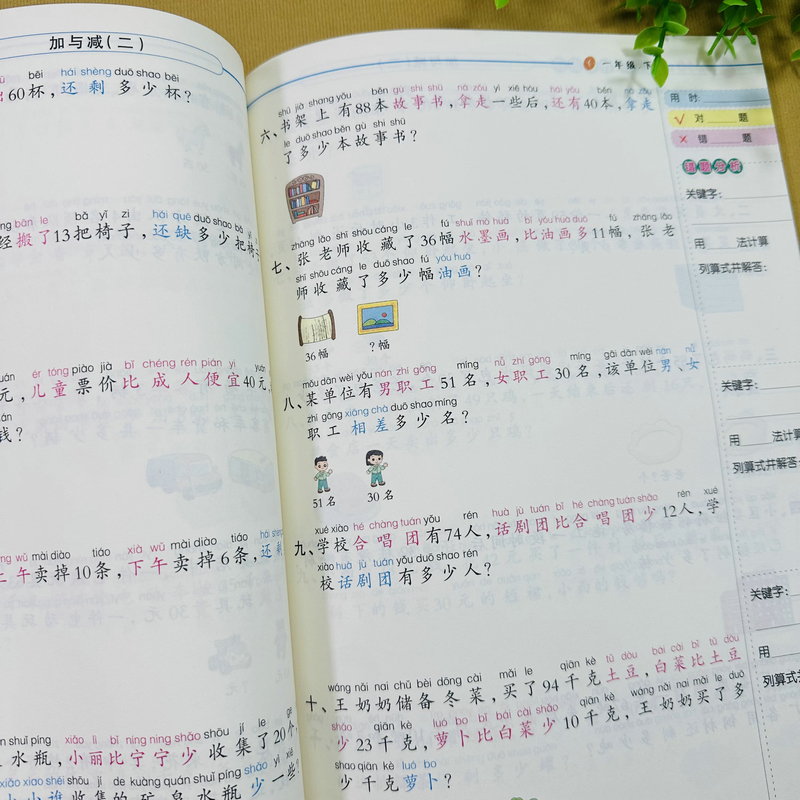 加与减(二)
bēi hái shèng duō shao bēi
出60杯,还剩多少杯?
bān le bǎ yǐ zi hái quē duō shao bǎ
经搬了13把椅子,还缺多少把椅
ér tóng piào jià bǐ chéng rén pián yi
元,儿童票价比成人便宜40元,
钱?
mài diào tiáo xià wǔ mài diào tiáo
上午卖掉10条,下午卖掉6条,还剩
shuǐ píng xiǎo lì bǐ níng ning shǎo shōu jí le
水瓶,小丽比宁宁少收集了20个,
shōu jí de kuàng quán shuǐ píng shǎo yì xiē
收集的矿泉水瓶少一些?
一年级.下
shū jià shang yǒu běn gù shi shū ná zǒu yì xiē hòu hái yǒu běn ná zǒu
六、书架上有88本故事书,拿走一些后,还有40本,拿走
le duō shao běn gù shi shū
了多少本故事书?
zhāng lǎo shī shōu cáng le fú shuǐ mò huà bǐ yóu huà duō fú zhāng lǎo
七、张老师收藏了36幅水墨画,比油画多11幅,张老
shī shōu cáng le duō shao fú yóu huà
师收藏了多少幅油画?
36幅
?幅
mǒu dān wèi yǒu nán zhí gōng míng nǚ zhí gōng míng gāi dān wèi nán nǚ
八、某单位有男职工51名,女职工30名,该单位男、女
zhí gōng xiāng chà duō shao míng
职工相差多少名?
51名
30名
xué xiào hé chàng tuán yǒu rén huà jù tuán bǐ hé chàng tuán shǎo rén xué
九、学校合唱团有74人,话剧团比合唱团少12人,学
xiào huà jù tuán yǒu duō shao rén
校话剧团有多少人?
wáng nǎi nai chǔ bèi dōng cài mǎi le qiān kè tǔ dòu bái cài bǐ tǔ dòu
十、王奶奶储备冬菜,买了94千克土豆,白菜比土豆
shǎo qiān kè luó bo bǐ bái cài shǎo qiān kè wáng nǎi nai mǎi le duō
少23千克,萝卜比白菜少10千克,王奶奶买了多
shao qiān kè luó bo
少千克萝卜?
用 时:
✓ 对 题
× 错 题
错题分析
关键字:
用 法计算
列算式并解答:
关键字:
用 法计算
列算式并解答:
关键字:
用
列算式并